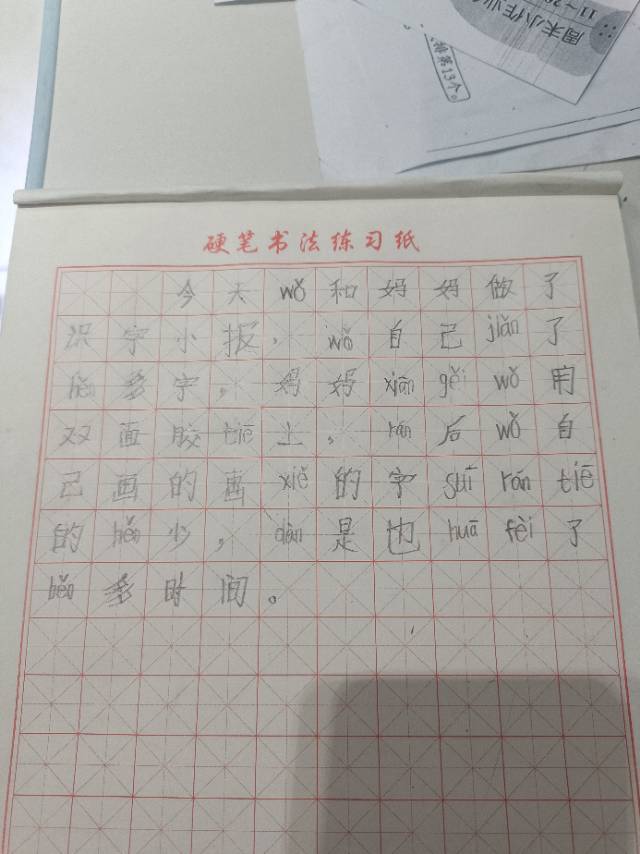 周末小作业
11～
排第13个。
硬笔书法练习纸
今天wǒ和妈妈做了
识字小报，wǒ自己jiǎn了
hěn多字，妈妈xiān gěi wǒ用
双面胶tiē上，rán后wǒ自
己画的画xiě的字suī rán tiē
的hěn少，dàn是也huā fèi了
hěn多时间。